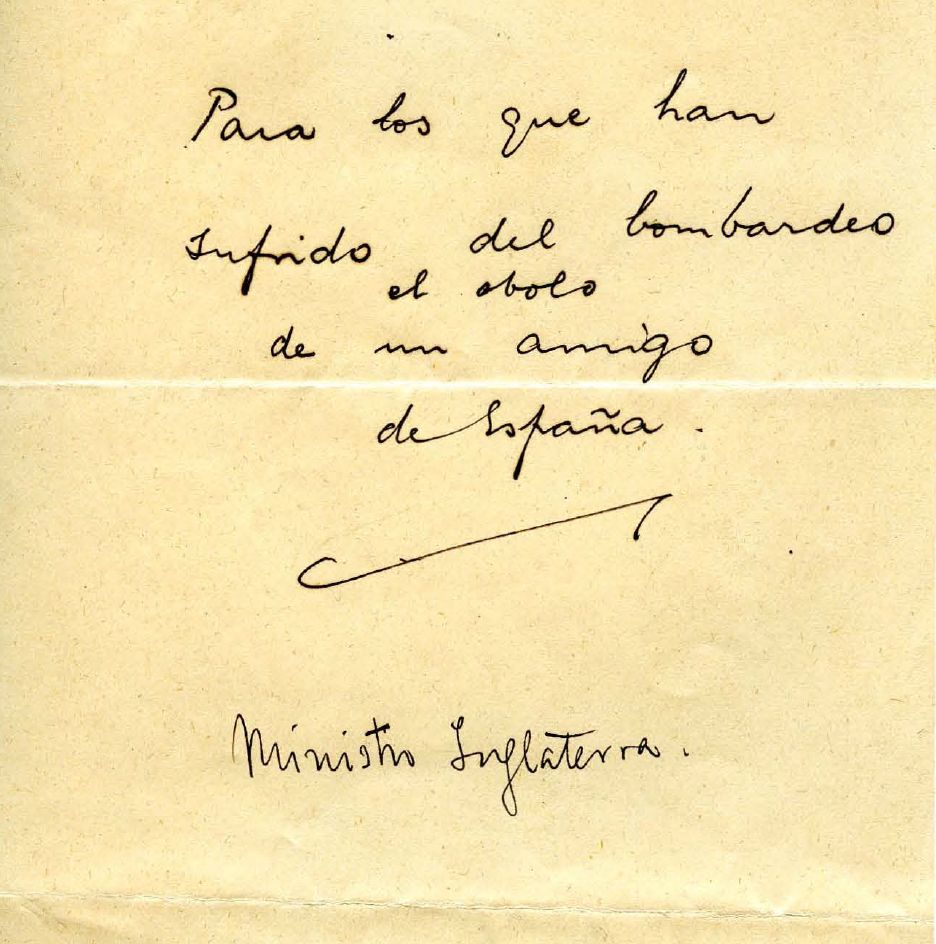 Para los que han
sufrido del bombardeo
el obolo
de un amigo
de España.
Ministro Inglaterra.